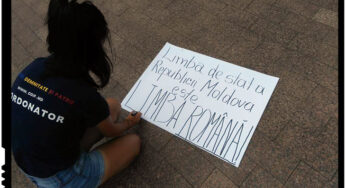 DEMNITATE ȘI
WWW.PDP.MD
ORDONATOR
Limba de stat a
Republicii Moldova
este
LIMBA ROMÂNĂ!